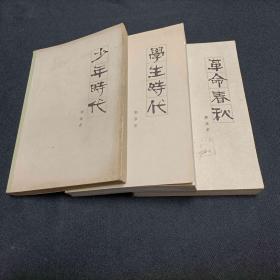 少年時代
學生時代
革命春秋